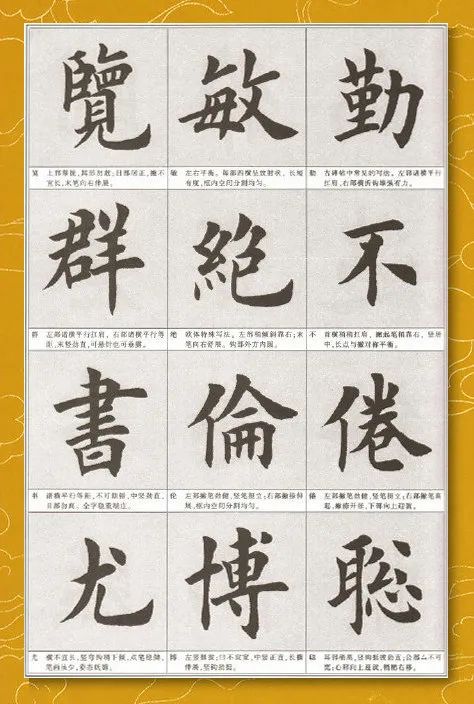 勤
勤 古碑帖中常见的写法。左部诸横平行
扛肩,右部横折钩雄强有力。
不
不 首横稍稍扛肩,撇起笔稍靠右,竖居
中,长点与撇对称平衡。
倦
倦 左部撇笔劲健,竖笔挺立;右部撇笔高
起,撇捺开张,下部向上迎就。
聦
聪 耳部瘦高,竖钩挺拔劲直;公部厶不可
宽;心部向上迎就,稍稍右移。
敏
敏 左右平衡,每部四横呈放射状,长短
有度,框内空间分割均匀。
絕
绝 欧体特殊写法。左部稍倾斜靠右;末
笔向右舒展,钩部外方内圆。
倫
伦 左部撇笔劲健,竖笔挺立;右部撇捺伸
展,框内空间分割均匀。
博
博 左竖挺拔;曰不宜宽,中竖正直,长横
伸展,竖钩劲挺。
覽
览 上部厚拙,其形勿散;目部居正,撇不
宜长,末笔向右伸展。
群
群 左部诸横平行扛肩,右部诸横平行等
距,末竖劲直,可悬针也可垂露。
書
书 诸横平行等距,不可 中竖劲直,
日部勿宽,全字稳重端庄。
尤
尤 横不宜长,竖弯钩稍下倾,点笔稳健,
笔画虽少,姿态妩媚。